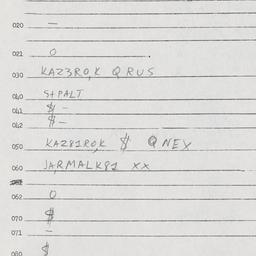 020 —
021 0
030 KAZ3ROK QRUS
040 STPALT
041 $ —
042 $ —
050 KAZ81ROK $ QNEX
060 JARMALK81 XX
062 0
070 $
071 —
080 $